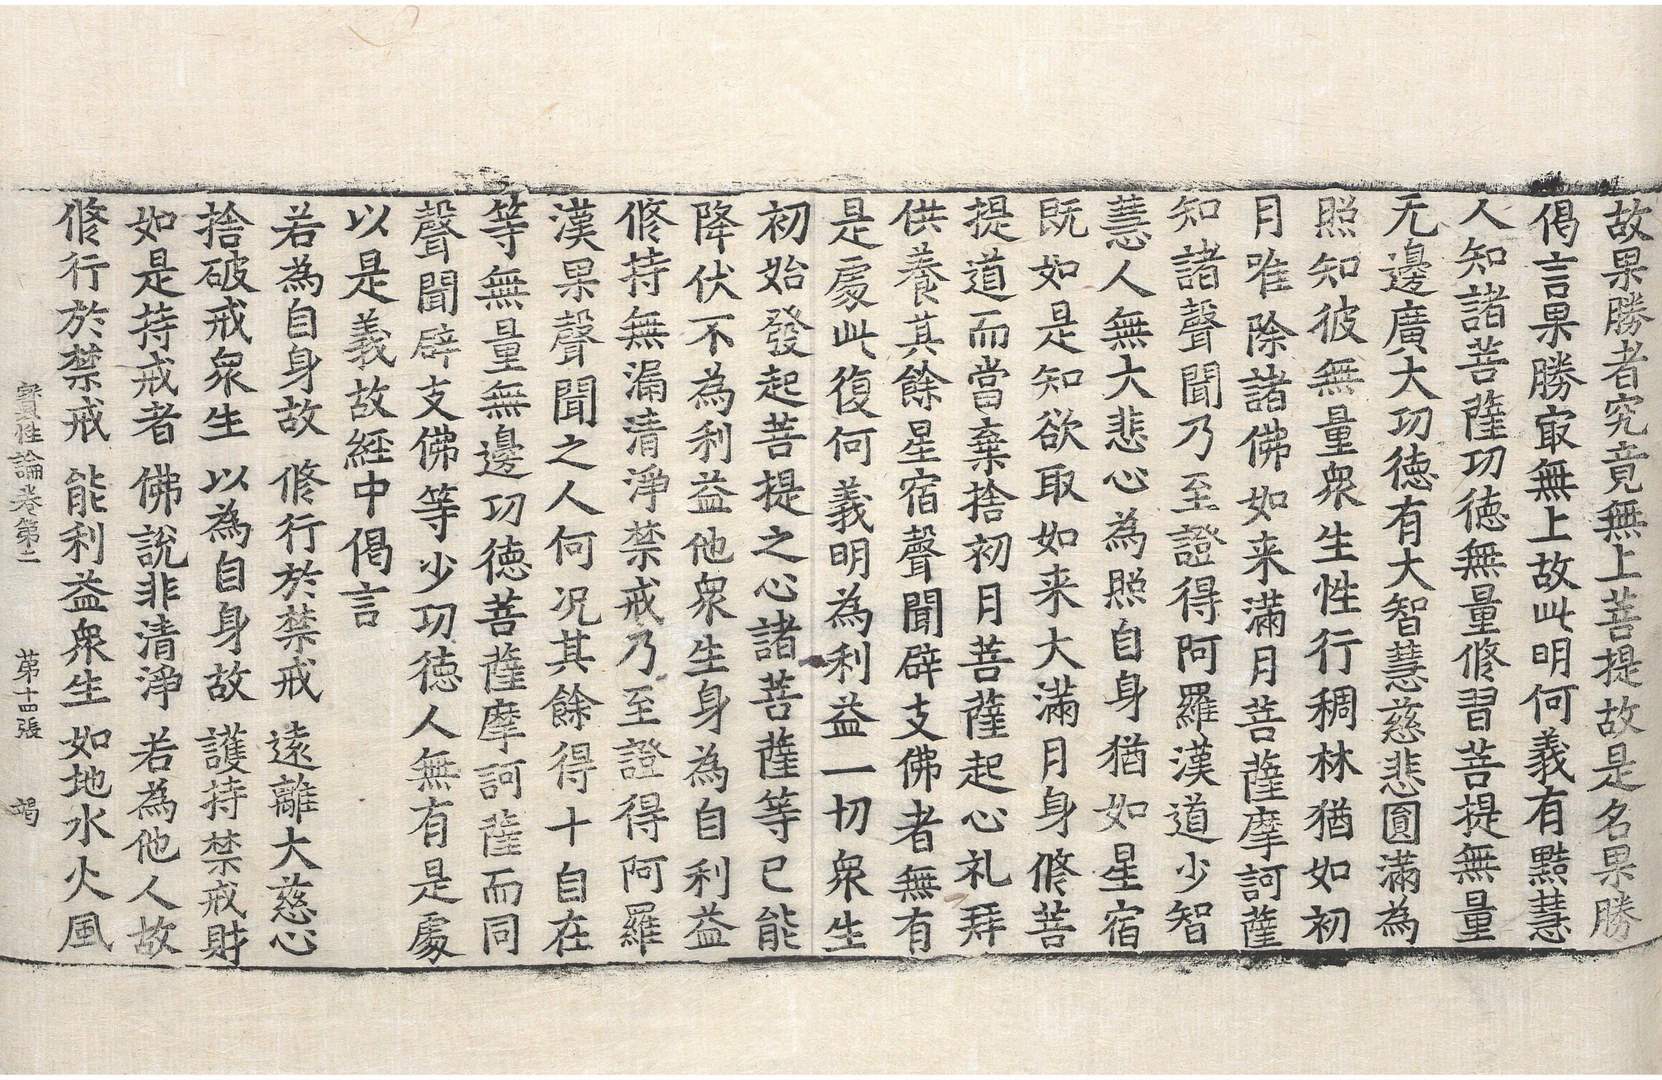 故果勝者究竟無上菩提故是名果勝
偈言果勝㝡無上故此明何義有黠慧
人知諸菩薩功徳無量修習菩提無量
无邊廣大功徳有大智慧慈悲圓滿為
照知彼無量衆生性行稠林猶如初
月唯除諸佛如来滿月菩薩摩訶薩
知諸聲聞乃至證得阿羅漢道少智
慧人無大悲心為照自身猶如星宿
既如是知欲取如来大滿月身修菩
提道而當棄捨初月菩薩起心礼拜
供養其餘星宿聲聞辟支佛者無有
是處此復何義明為利益一切衆生
初始發起菩提之心諸菩薩等已能
降伏不為利益他衆生身為自利益
修持無漏清淨禁戒乃至證得阿羅
漢果聲聞之人何况其餘得十自在
等無量無邊功徳菩薩摩訶薩而同
聲聞辟支佛等少功徳人無有是處
以是義故経中偈言
若為自身故 修行於禁戒 遠離大慈心
捨破戒衆生 以為自身故 護持禁戒財
如是持戒者 佛說非清淨 若為他人故
修行於禁戒 能利益衆生 如地水火風
寳性論卷第二 第十四張 竭